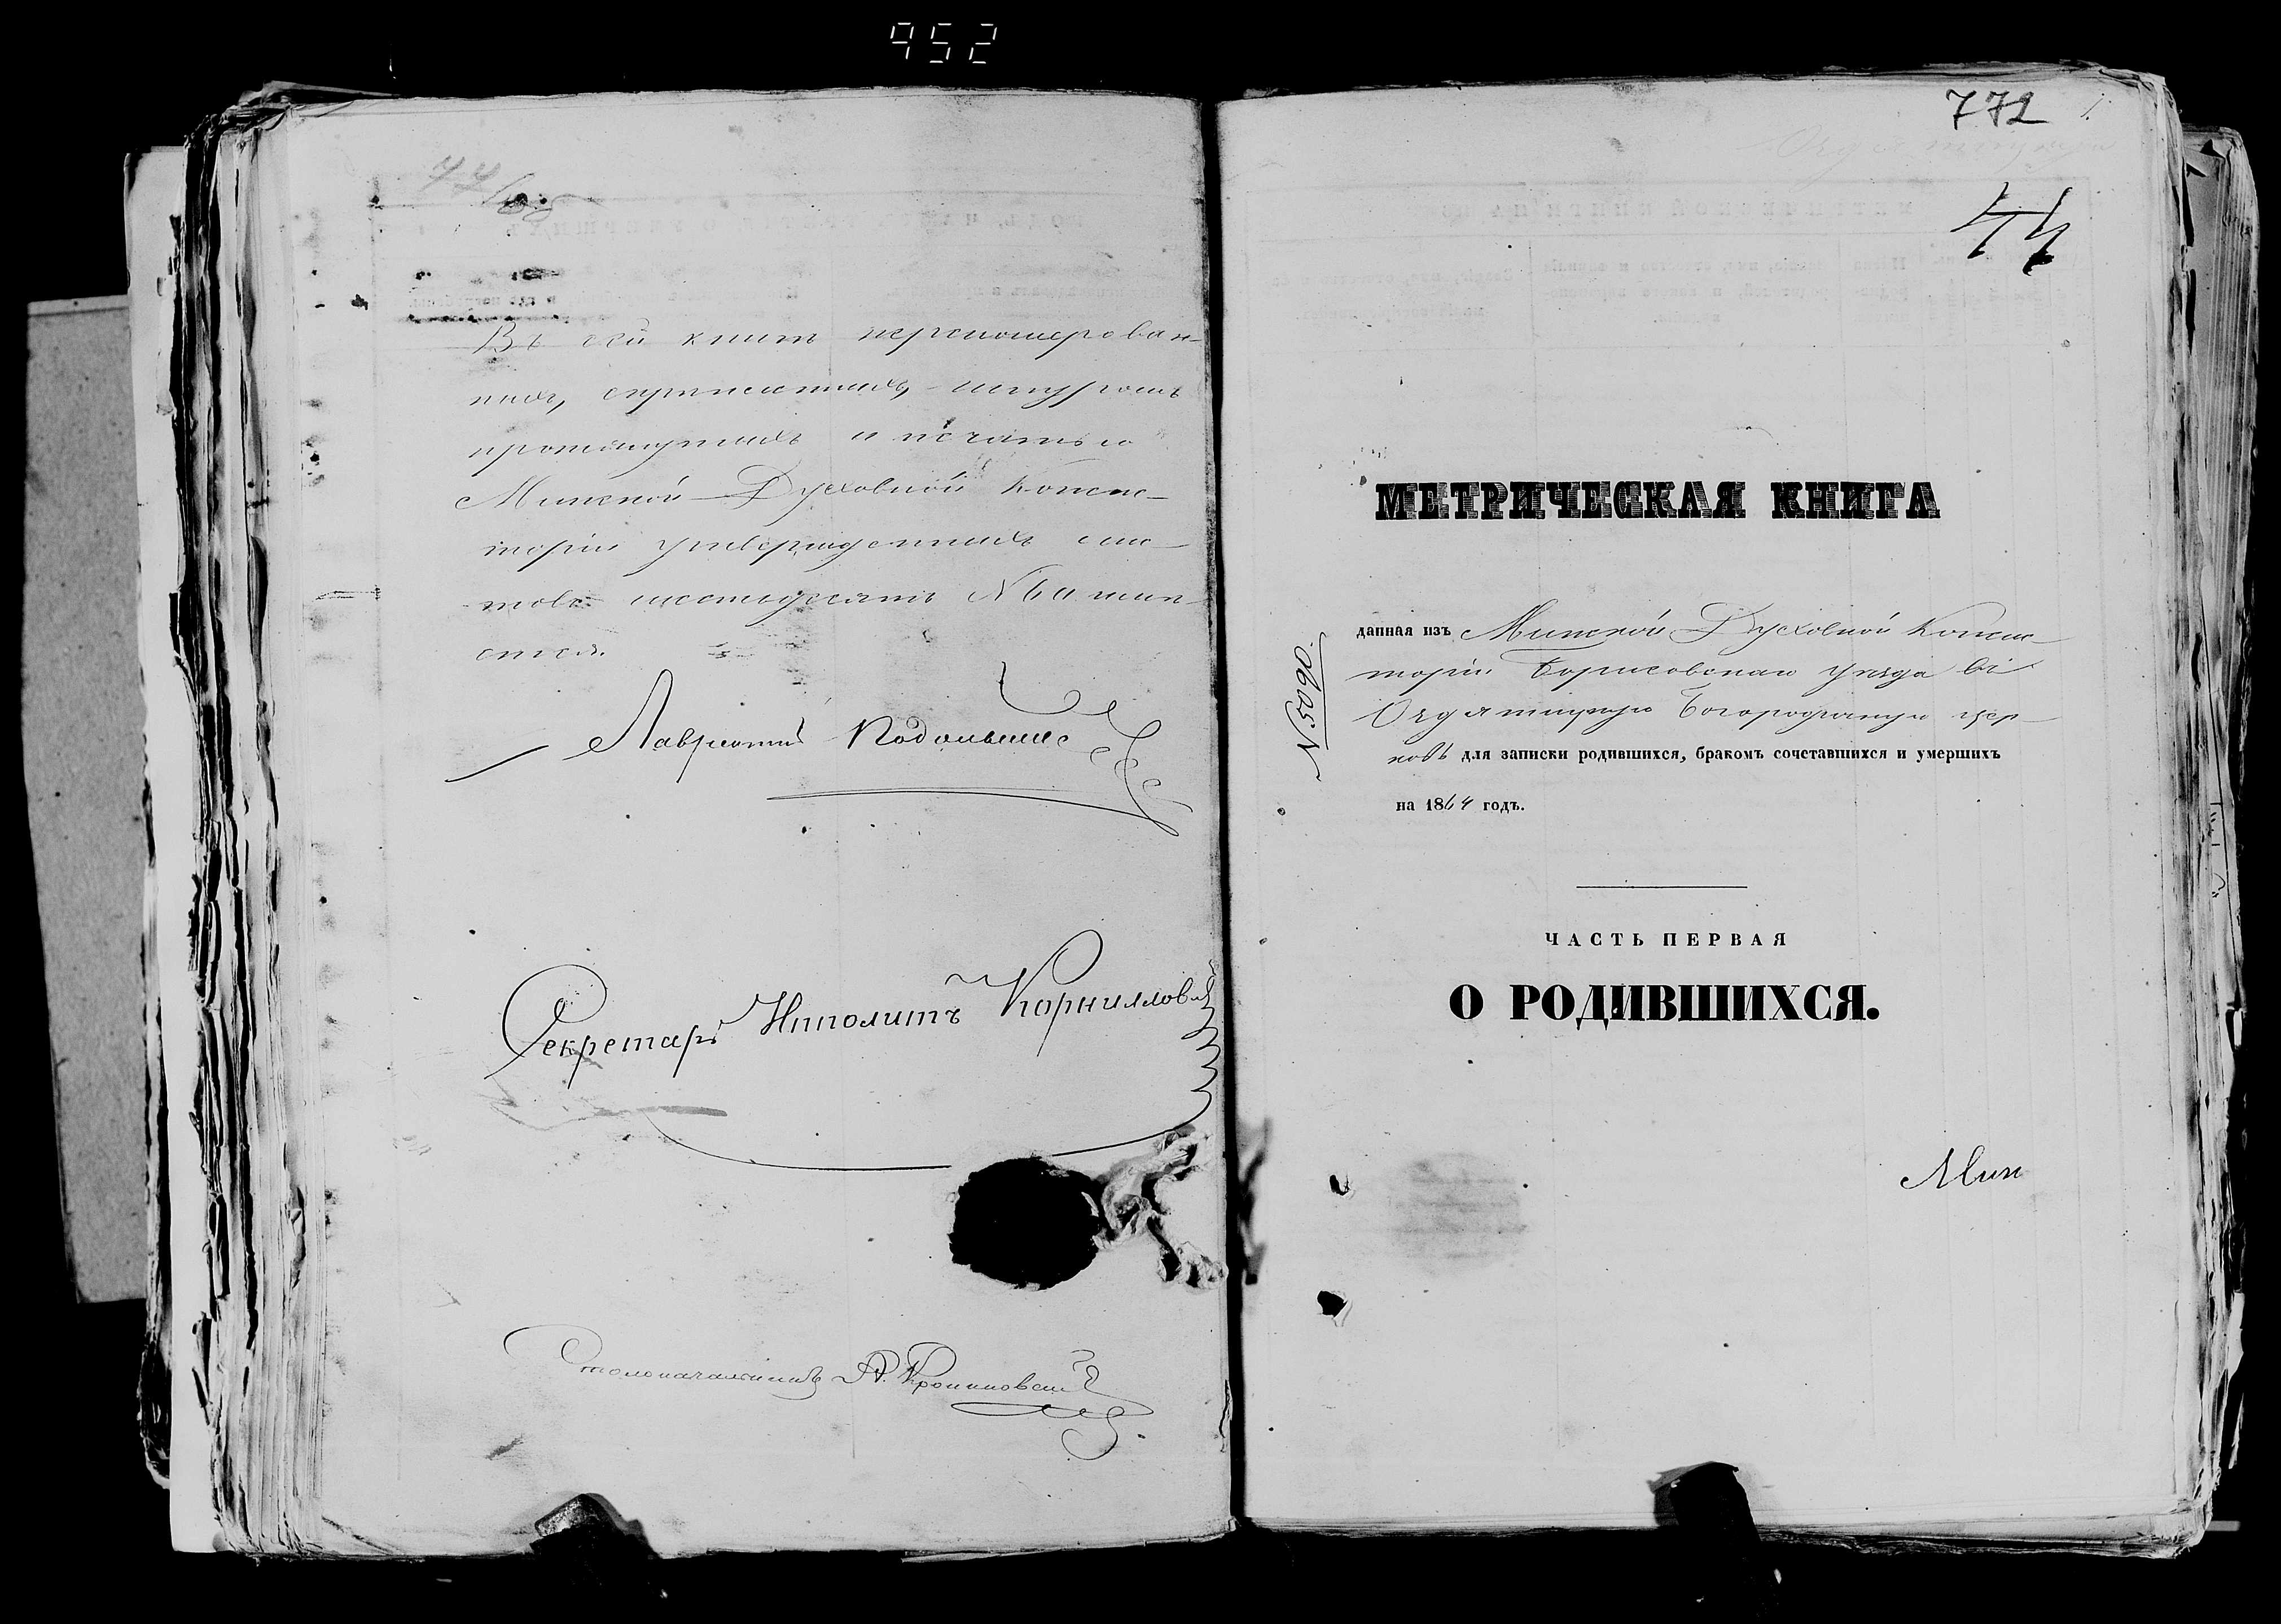 952
Въ сей книгѣ перномерован-
ныхъ, скрѣпленныхъ, шнуромъ
протянутыхъ и печатью
Минской Духовной Консис-
торіи утвержденныхъ лис-
товъ шестьдесятъ № 60 име-
ется.
Лаврентій
Секретарь Ипполитъ Корниловъ
Столоначальникъ А.
772
44
МЕТРИЧЕСКАЯ КНИГА
N 5090.
данная изъ Минской Духовной Консис
торіи Борисовскаго уѣзда въ
Очдятицкую Богородичную цер-
ковь для записки родившихся, бракомъ сочетавшихся и умершихъ
на 1864 годъ.
ЧАСТЬ ПЕРВАЯ
О РОДИВШИХСЯ.
Мин